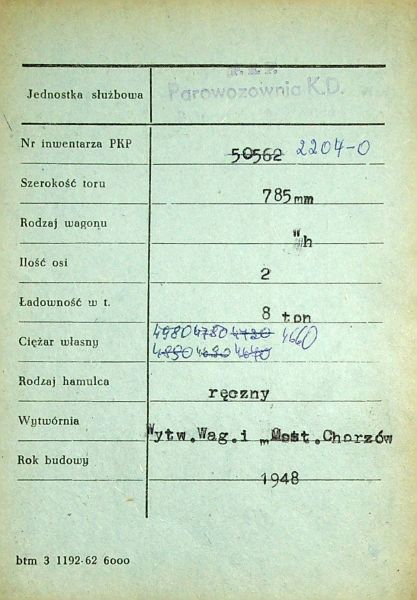 P.K.P.
Jednostka służbowa Parowozownia K.D.
Nr inwentarza PKP 50562 2204-0
Szerokość toru 785mm
Rodzaj wagonu Wh
Ilość osi 2
Ładowność w t. 8 ton
4980 4780 4720 4660
Ciężar własny
4850 4680 4670
Rodzaj hamulca ręczny
Wytwórnia Wytw.Wag.i „Most.Chorzów
Rok budowy 1948
btm 3 1192-62 6000